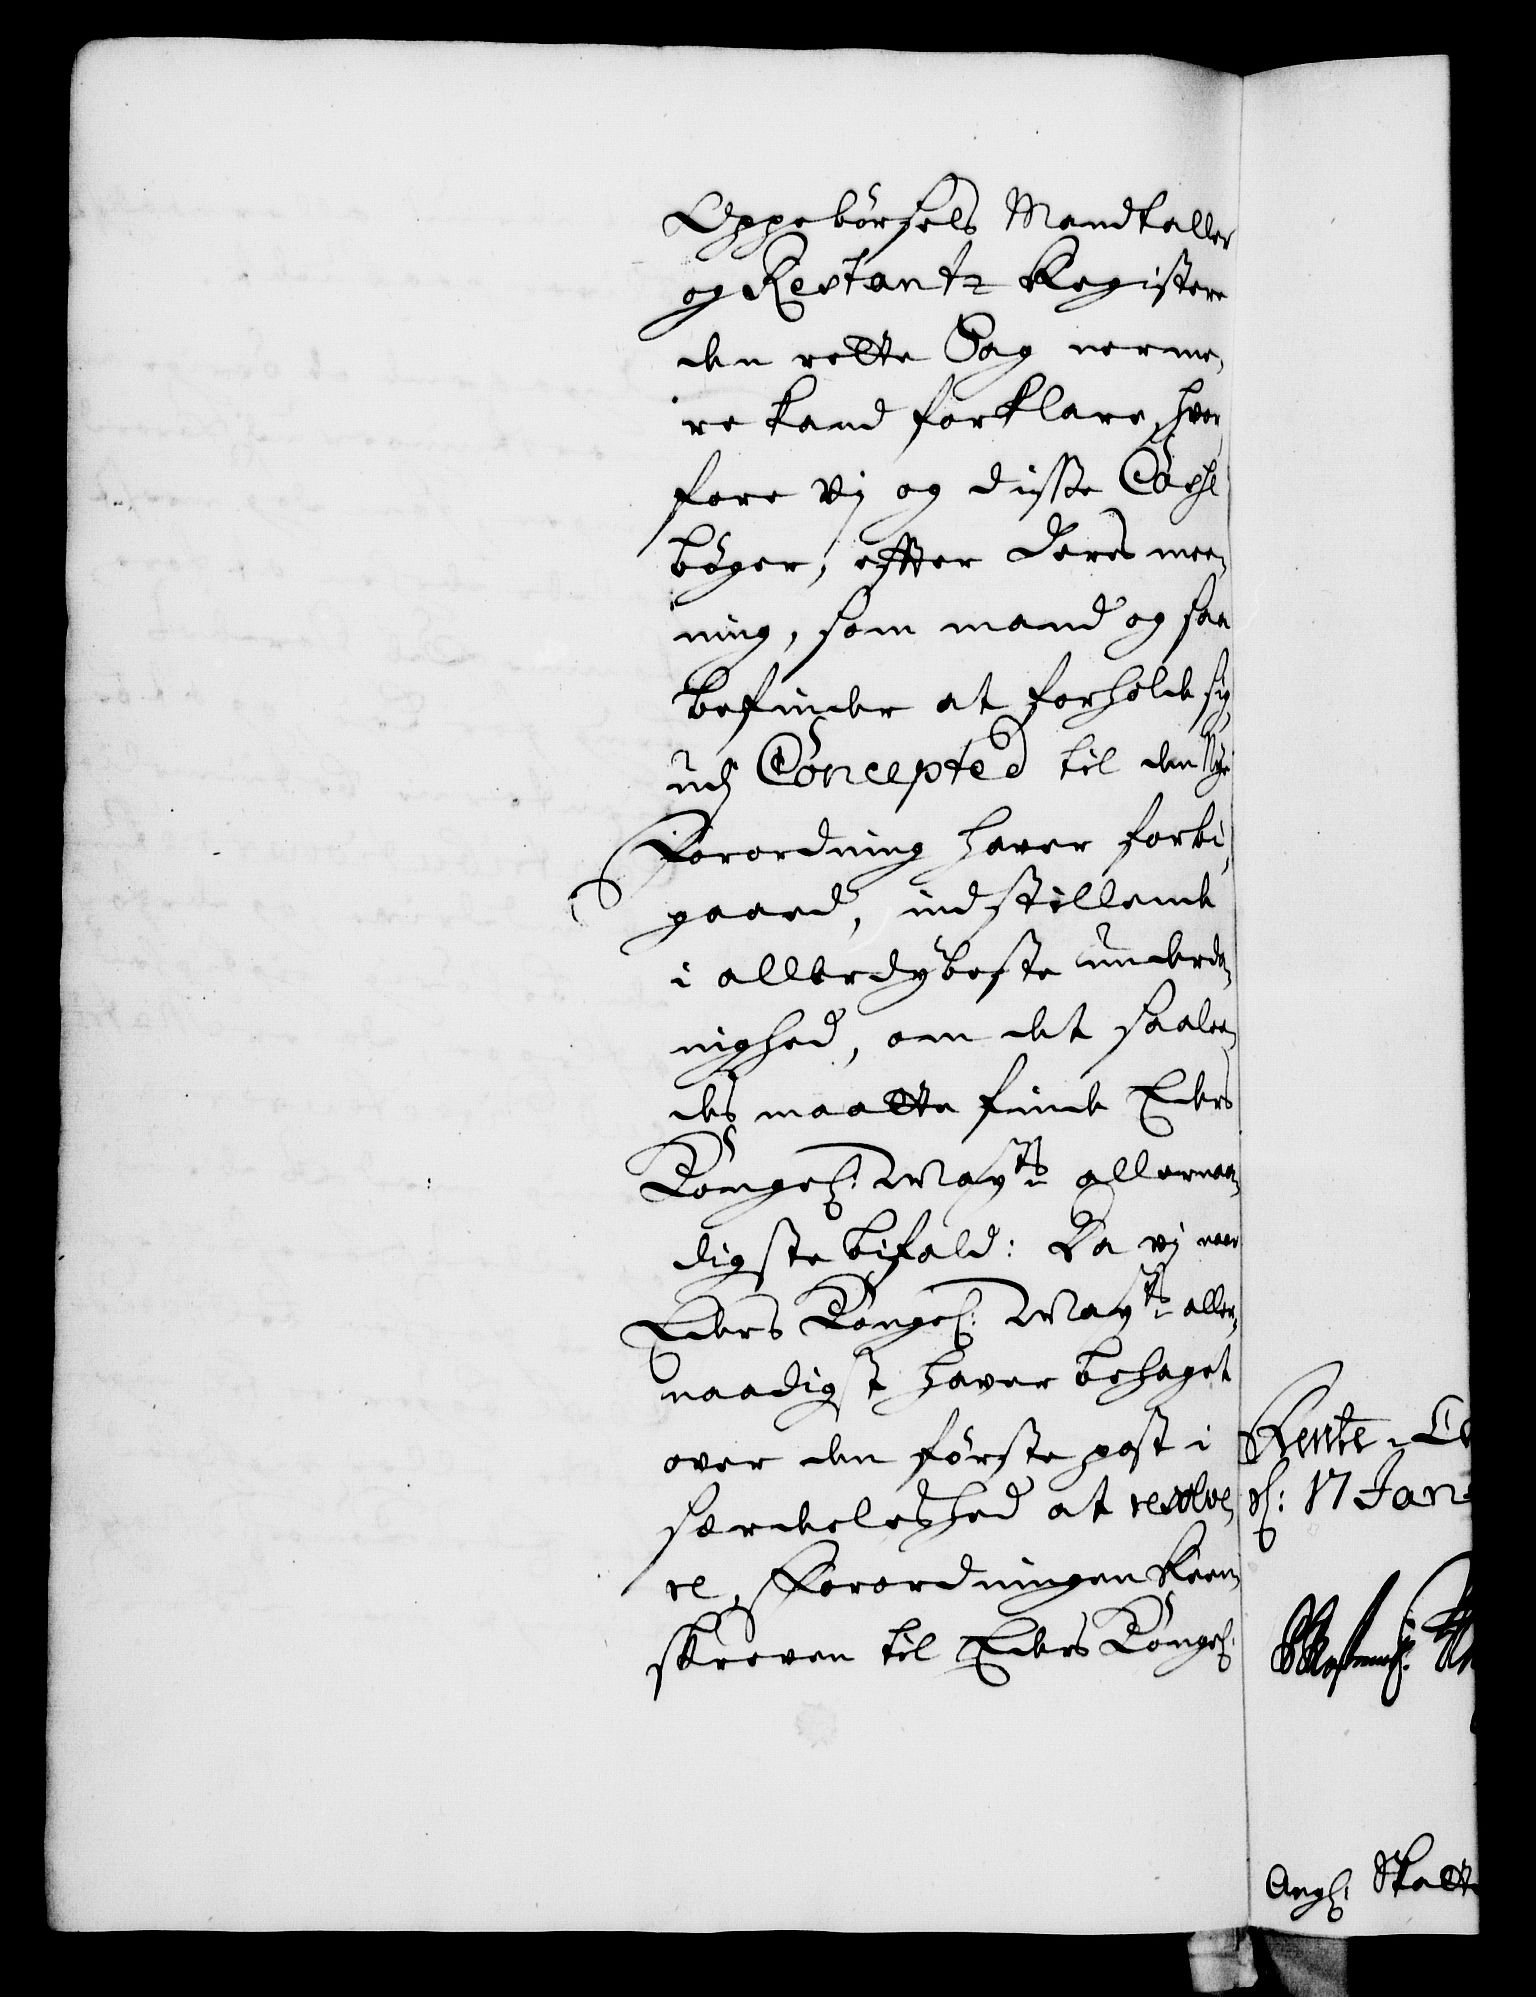 Oppebörsels Mandtaller
og Restantz Registere
den rette Sag nerme,
re kand forklare, hvor,
fore vj og disse
böger, effter deres mee,
ning, som mand og saa
befinder at forholde sig,
udj Concepted til den Nye
Forordning haver forbi,
gaaed, indstillende
i allerdybeste underda,
nighed, om det saalee,
des maatte finde Eders
Kongel: May:ts allernaa,
digste bifald: Da vj naar
Eders Kongel: May:ts aller,
naadigst haver behaget
over den förste post i
særdeleshed at resolve,
re, Forordningen Reen,
skreven til Eders Kongel:
Rente-C
d: 17 Jan
Angl: Skatt